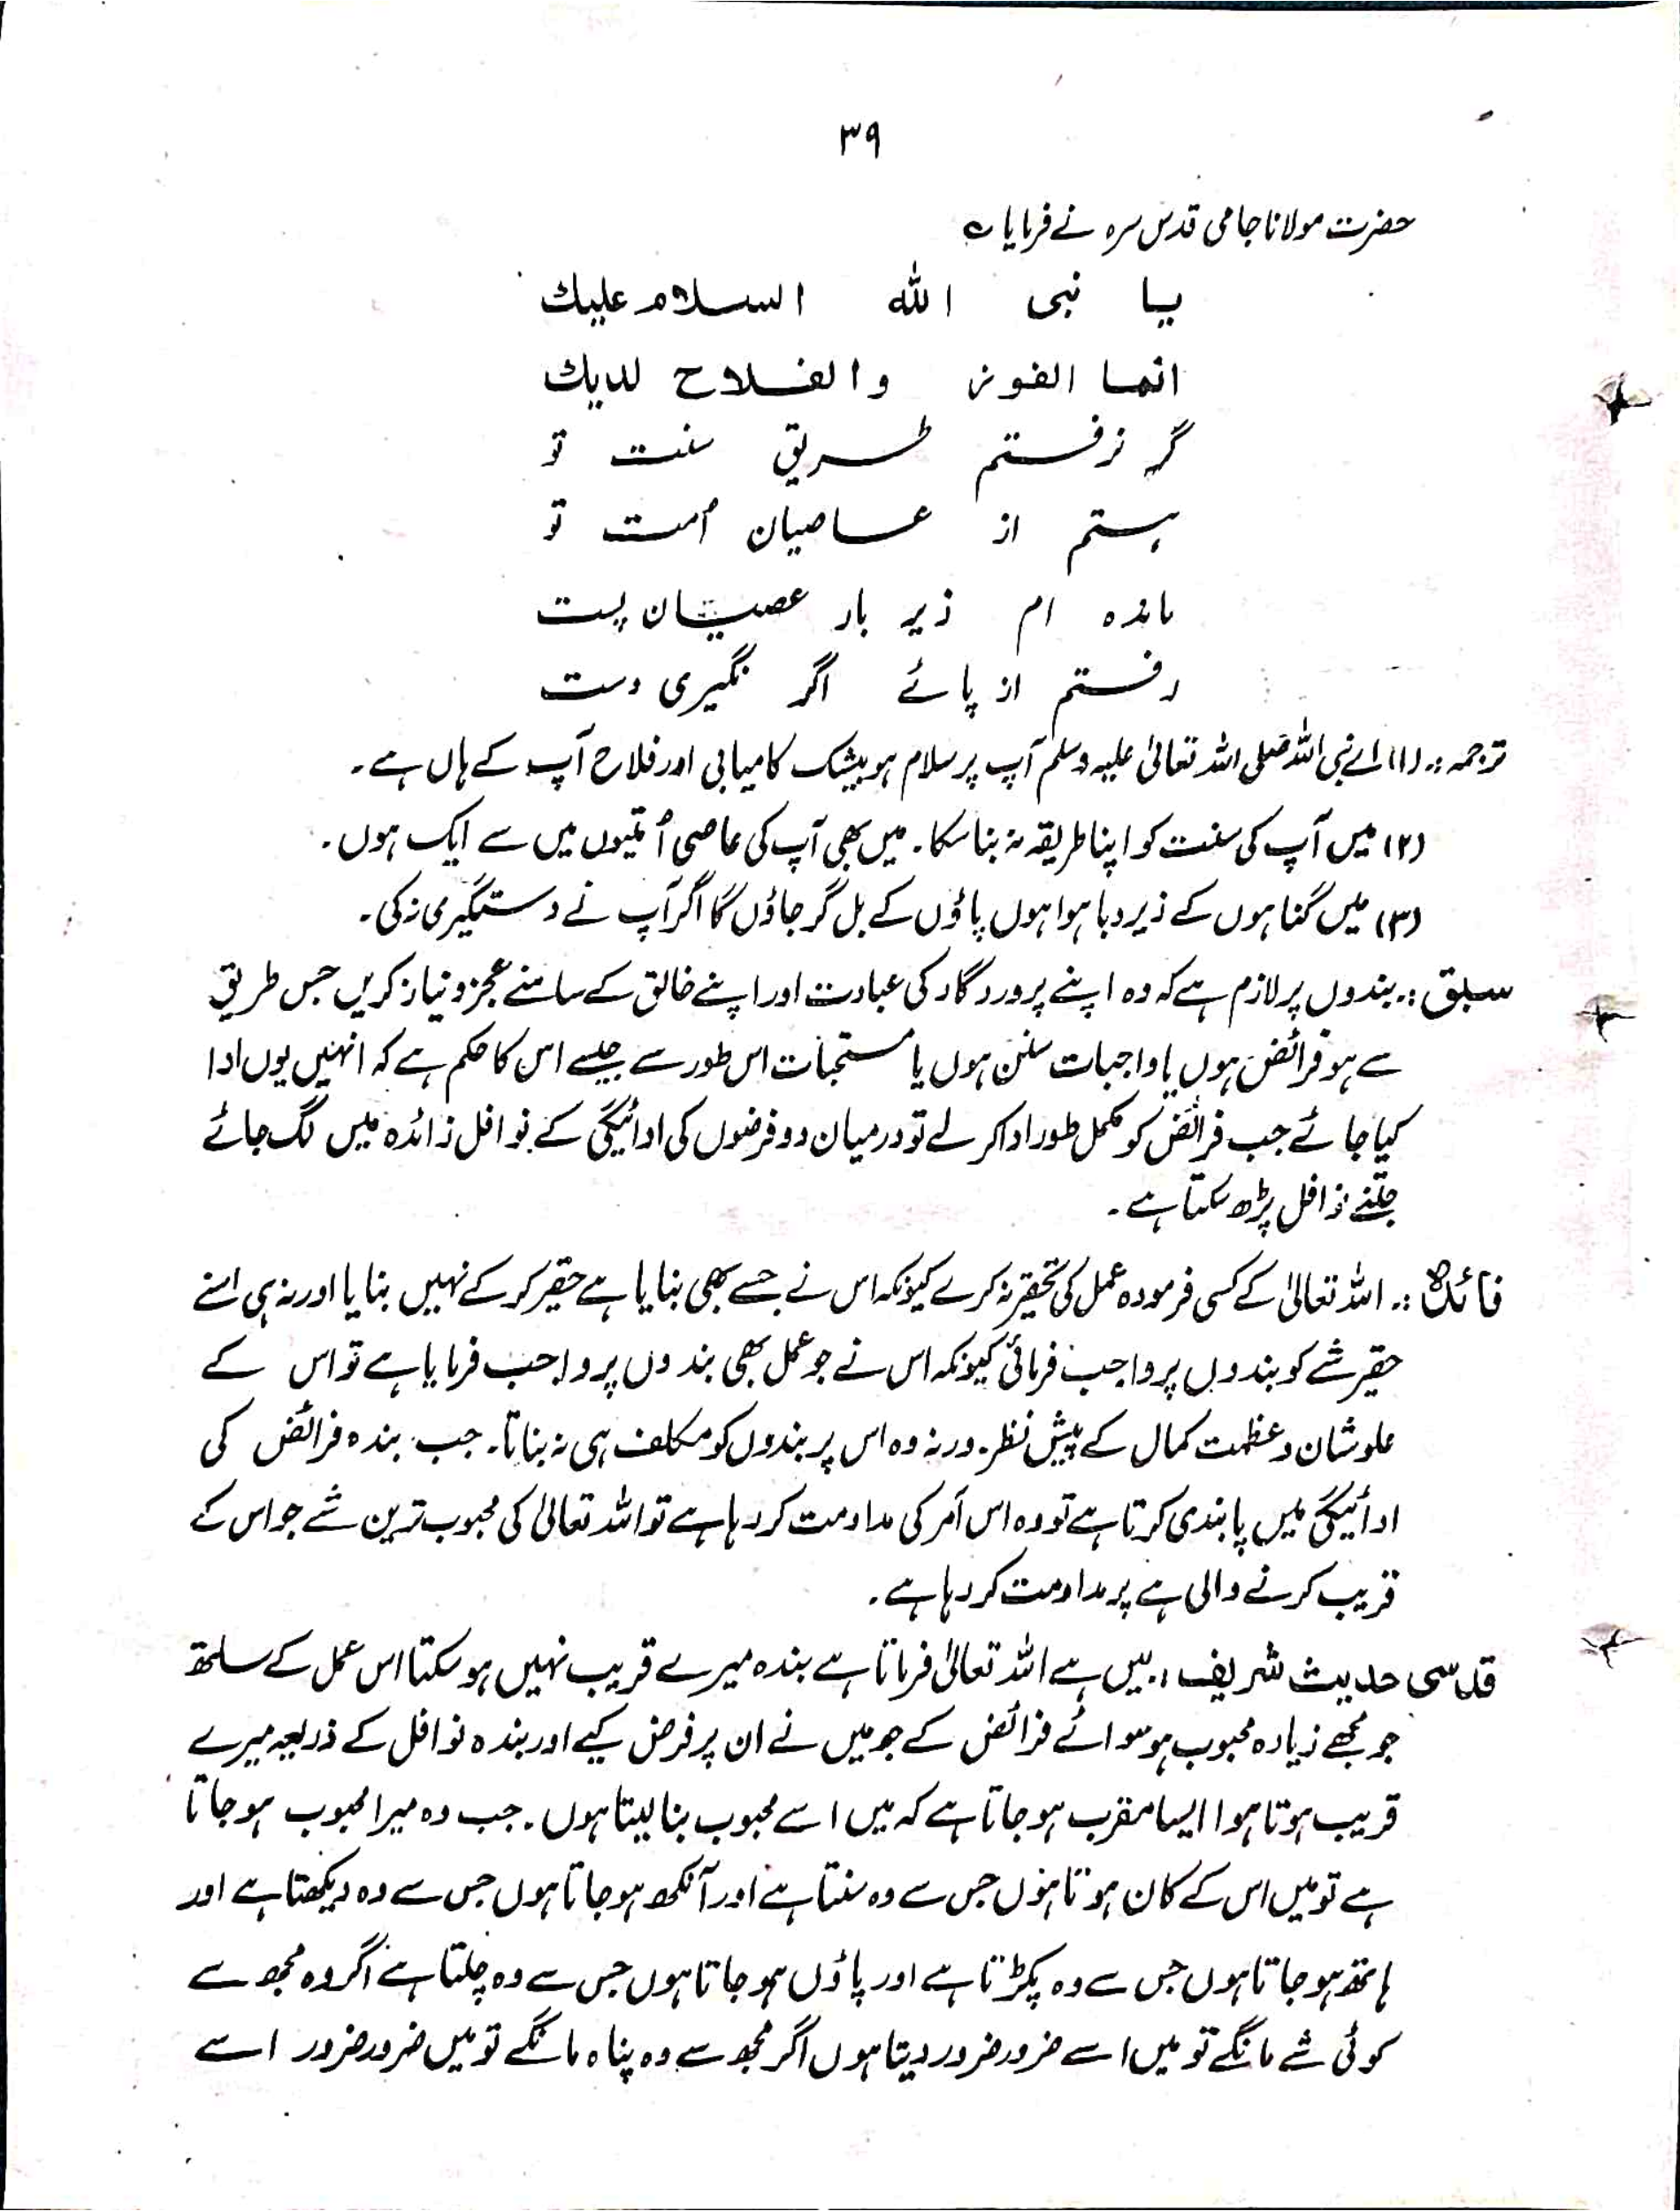 ۳۹
حضرت مولانا جامی قدس سرہ نے فرمایا ؎
یا نبی الله السلام علیك
انما الفوز والفلاح لدیك
گر نرفتم طریق سنت تو
ہستم از عاصیان اُمت تو
ماندہ ام زیر بار عصیان پست
رفتم از پائے اگر نگیری دست
ترجمہ :. (۱) اے نبی اللہ صلی اللہ تعالیٰ علیہ وسلم آپ پر سلام ہو بیشک کامیابی اور فلاح آپ کے ہاں ہے۔
(۲) میں آپ کی سنت کو اپنا طریقہ نہ بنا سکا۔ میں بھی آپ کی عاصی اُمتیوں میں سے ایک ہوں۔
(۳) میں گناہوں کے زیر دبا ہوا ہوں پاؤں کے بل گر جاؤں گا اگر آپ نے دستگیری نہ کی۔
سبق :. بندوں پر لازم ہے کہ وہ اپنے پروردگار کی عبادت اور اپنے خالق کے سامنے عجز و نیاز کریں جس طریق
سے ہو فرائض ہوں یا واجبات سنن ہوں یا مستحبات اس طور سے جیسے اس کا حکم ہے کہ انہیں یوں ادا
کیا جائے جب فرائض کو مکمل طور ادا کر لے تو درمیان دو فرضوں کی ادائیگی کے نوافل زائدہ میں لگ جائے
جتنے نوافل پڑھ سکتا ہے۔
فائدہ :. اللہ تعالیٰ کے کسی فرمودہ عمل کی تحقیر نہ کرے کیونکہ اس نے جسے بھی بنایا ہے حقیر کر کے نہیں بنایا اور نہ ہی اسنے
حقیر شے کو بندوں پر واجب فرمائی کیونکہ اس نے جو عمل بھی بندوں پر واجب فرمایا ہے تو اس کے
علو شان و عظمت کمال کے پیش نظر۔ ورنہ وہ اس پر بندوں کو مکلف ہی نہ بناتا۔ جب بندہ فرائض کی
ادائیگی میں پابندی کرتا ہے تو وہ اس اَمر کی مداومت کر رہا ہے تو اللہ تعالیٰ کی محبوب ترین شے جو اس کے
قریب کرنے والی ہے پر مداومت کر رہا ہے۔
قدسی حدیث شریف :. میں ہے اللہ تعالیٰ فرماتا ہے بندہ میرے قریب نہیں ہو سکتا اس عمل کے ساتھ
جو مجھے زیادہ محبوب ہو سوائے فرائض کے جو میں نے ان پر فرض کیے اور بندہ نوافل کے ذریعہ میرے
قریب ہوتا ہوا ایسا مقرب ہو جاتا ہے کہ میں اسے محبوب بنا لیتا ہوں۔ جب وہ میرا محبوب ہو جاتا
ہے تو میں اس کے کان ہوتا ہوں جس سے وہ سنتا ہے اور آنکھ ہو جاتا ہوں جس سے وہ دیکھتا ہے اور
ہاتھ ہو جاتا ہوں جس سے وہ پکڑتا ہے اور پاؤں ہو جاتا ہوں جس سے وہ چلتا ہے اگر وہ مجھ سے
کوئی شے مانگے تو میں اسے ضرور ضرور دیتا ہوں اگر مجھ سے وہ پناہ مانگے تو میں ضرور ضرور اسے